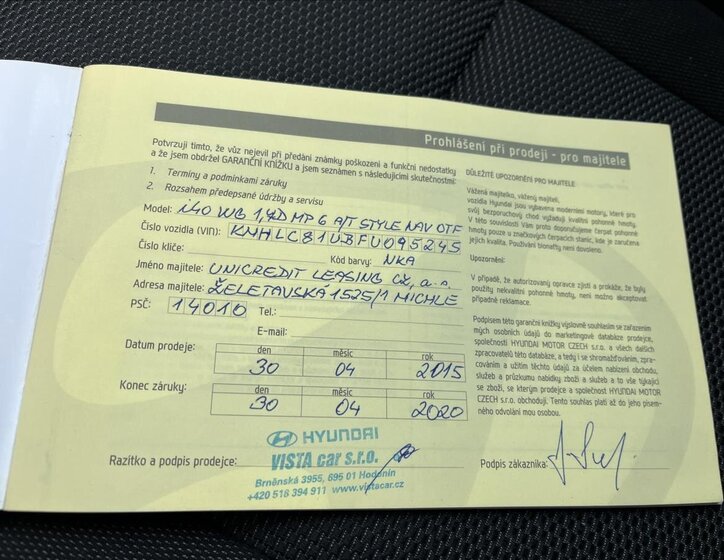 Prohlášení při prodeji - pro majitele
Potvrzuji tímto, že vůz nejevil při předání známky poškození a funkční nedostatky
a že jsem obdržel GARANČNÍ KNÍŽKU a jsem seznámen s následujícími skutečnostmi:
1. Termíny a podmínkami záruky
2. Rozsahem předepsané údržby a servisu
Model: i40 WG 1,7D MP 6 A/T STYLE NAV OTF
Číslo vozidla (VIN): KMHLC81UBFU095245
Číslo klíče: Kód barvy: NKA
Jméno majitele: UNICREDIT LEASING CZ, a.s.
Adresa majitele: ŽELETAVSKÁ 1525/1 MICHLE
PSČ: 14010 Tel.:
E-mail:
Datum prodeje: den měsíc rok
30 04 2015
Konec záruky: den měsíc rok
30 04 2020
Razítko a podpis prodejce:
HYUNDAI
VISTA car s.r.o.
Brněnská 3955, 695 01 Hodonín
+420 518 394 911 www.vistacar.cz
DŮLEŽITÉ UPOZORNĚNÍ PRO MAJITELE:
Vážená majitelko, vážený majiteli,
vozidla Hyundai jsou vybavena moderními motory, které pro
svůj bezporuchový chod vyžadují kvalitní pohonné hmoty.
V této souvislosti Vám proto doporučujeme čerpat pohonné
hmoty pouze u značkových čerpacích stanic, kde je zaručena
jejich kvalita. Používání bionafty není dovoleno.
Upozornění:
V případě, že autorizovaný opravce zjistí a prokáže, že byly
použity nekvalitní pohonné hmoty, není možno akceptovat
případné reklamace.
Podpisem této garanční knížky výslovně souhlasím se zařazením
mých osobních údajů do marketingové databáze prodejce,
společnosti HYUNDAI MOTOR CZECH s.r.o. a všech dalších
zpracovatelů této databáze, a tedy i se shromažďováním, zpra-
cováním a užitím těchto údajů za účelem nabízení obchodu,
služeb a průzkumu nabídky zboží a služeb a to vše týkající
se zboží, se kterým prodejce a společnost HYUNDAI MOTOR
CZECH s.r.o. obchodují. Tento souhlas platí až do jeho písem-
ného odvolání mou osobou.
Podpis zákazníka: